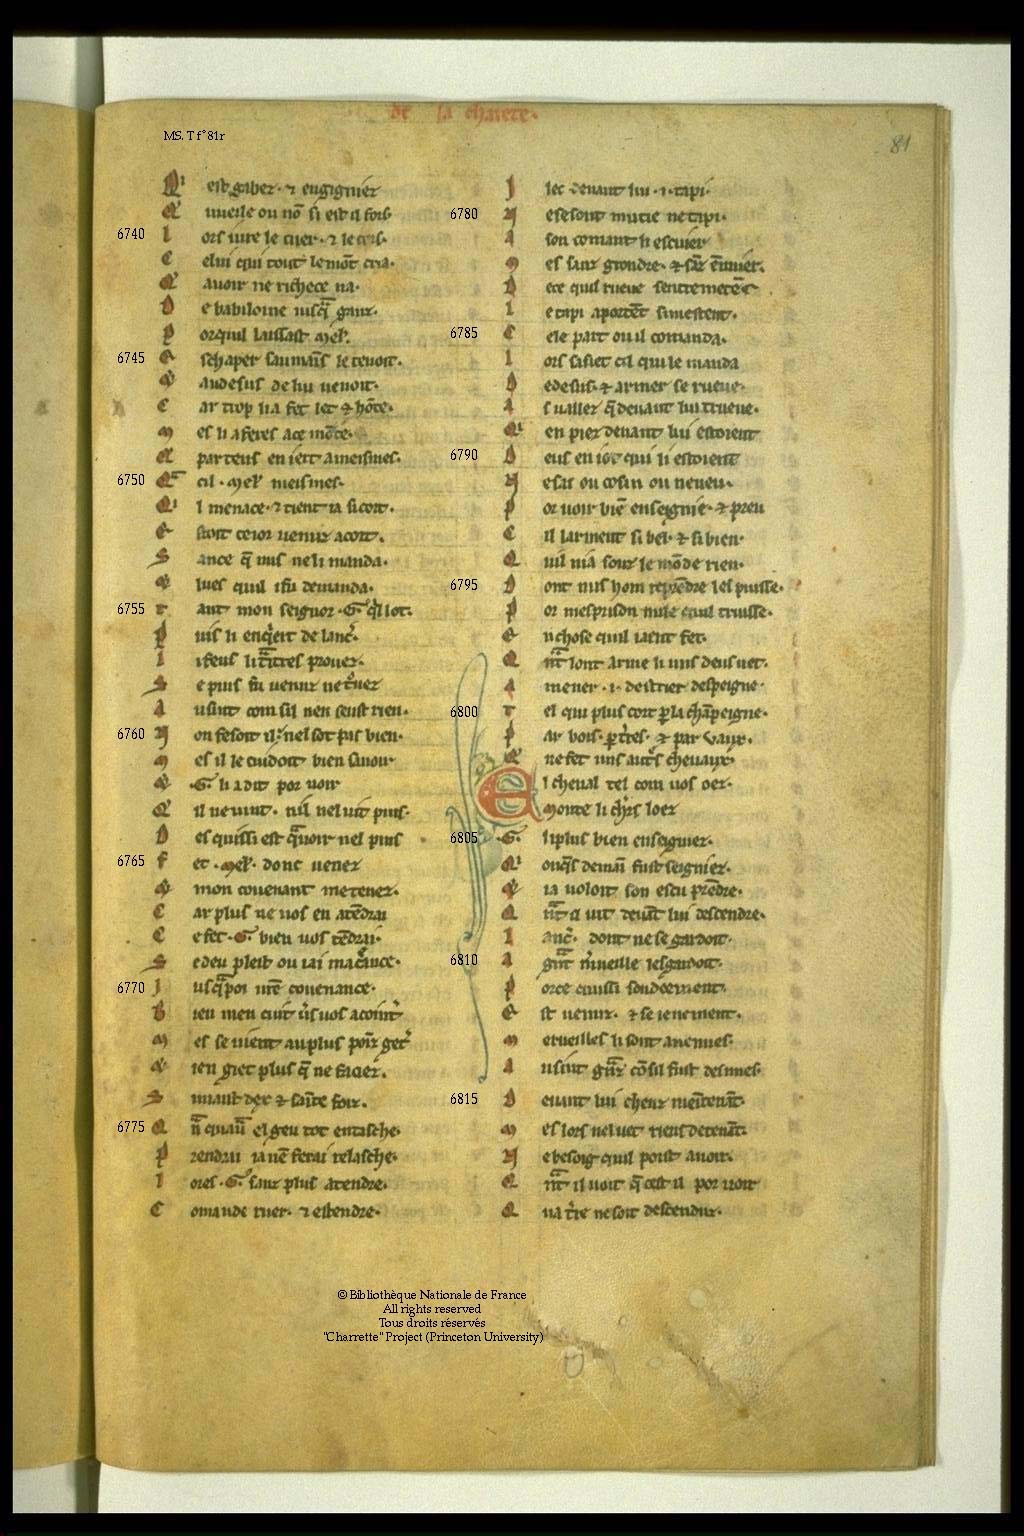 de la charete.
MS. T f° 81r
81
Qi est gaber. ⁊ engignier
Q' uueile ou nō si est il fors
6740
l ors iure le cuer. ⁊ le cors.
C elui qui tout le mōt cria.
Q' auoir ne richece na.
D e babiloine iusq̄ ganz.
p orquil laissast mel'.
6745
E schaper sau mains le tenoit.
au desus de lui uenoit.
C ar trop li a fet let ⁊ hōte.
m es li aferes a ce mōte.
a par teus en iert a meismes.
6750
cil. mel' meismes.
Qi l menace. ⁊ tient ia si cort.
E stoit ce ior uenuz a cort.
S ance q̄ nus ne li manda.
lues quil i fu demanda.
6755
t ant mon seignor .G. q̓l lot.
p uis li enq̓ert de lanc'.
S e puis fu uenuz ne t°uez
A usint com sil nen seust rien.
6760
N on fesoit il. nel sot pas bien.
m es il le cuidoit bien sauoir
.G. li a dit por uoir
Q' il ne uint. nil nel uit puis.
D es quissi est
6765
f et .mel'. donc uenez
mon couenant me tenez.
C ar plus ne uos en atēdrai
C e fet .G. bien uos rēdrai.
S e deu plest ou iai ma c̄ance.
6770
J usq̄ poi ure couenance.
B ien men cuit u's uos acointr
m es se uient au plus poīz get'
ien giet plus q̄ ne facez.
S uiaut dex ⁊ sainte foiz.
6775
el geu tot en tasche.
P rendrai ia nē ferai relasche.
l ores .G. sanz plus atendre.
C omande ruer. ⁊ estendre.
J lec deuant lui .i. tapi.
6780
N e se sont mucie ne tapi.
A son comant li escuier
m es sanz grondre. ⁊ sāz ēnuier.
D ece quil rueue sentremetēt
l e tapi aportēt si mestent.
6785
C ele part ou il comanda.
l ors sasiet cil qui le manda
D edesus. ⁊ armer se rueue.
A s uallez q̄ deuant lui trueue.
Qi en piez deuant lui estoient
6790
D eus en iot qui li estoient
N e sai ou cosin ou neueu.
p or uoir biē enseignie. ⁊ preu
C il larment si bel. ⁊ si bien.
Q uil nia souz le mōde rien.
6795
D ont nus hom reprēdre les puisse.
p or mesprison nule quil truisse.
E n chose quil iaient fet.
Q nt lont arme li uns deus uet.
A mener .i. destrier despeigne.
6800
t el qui plus cort p la chāpeigne.
p ar bois. p tr̄es. ⁊ par uaux.
Q' ne fet uns autr's cheuaux.
E l cheual tel com uos oez.
monte li chr̄s loez
6805
.G. li plus bien enseigniez.
ia uoloit son escu prēdre.
Q nt a uit deuāt lui descendre.
l anc'. dont ne se gardoit.
6810
A gnt m'ueille lesgardoit.
p orce quissi sondoement.
E st uenuz. ⁊ se ienement.
m erueilles li sont auenues.
A usint gnz cō sil fust des nues
6815
D euant lui cheuz meītenāt.
m es lors nel uet riens detenāt.
N e besoig quil poist auoir.
Q nt il uoit q̄ cest il por uoir
Q ua t're ne soit descenduz.
© Bibliothèque Nationale de France
All rights reserved
Tous droits réservés
"Charrette" Project (Princeton University)